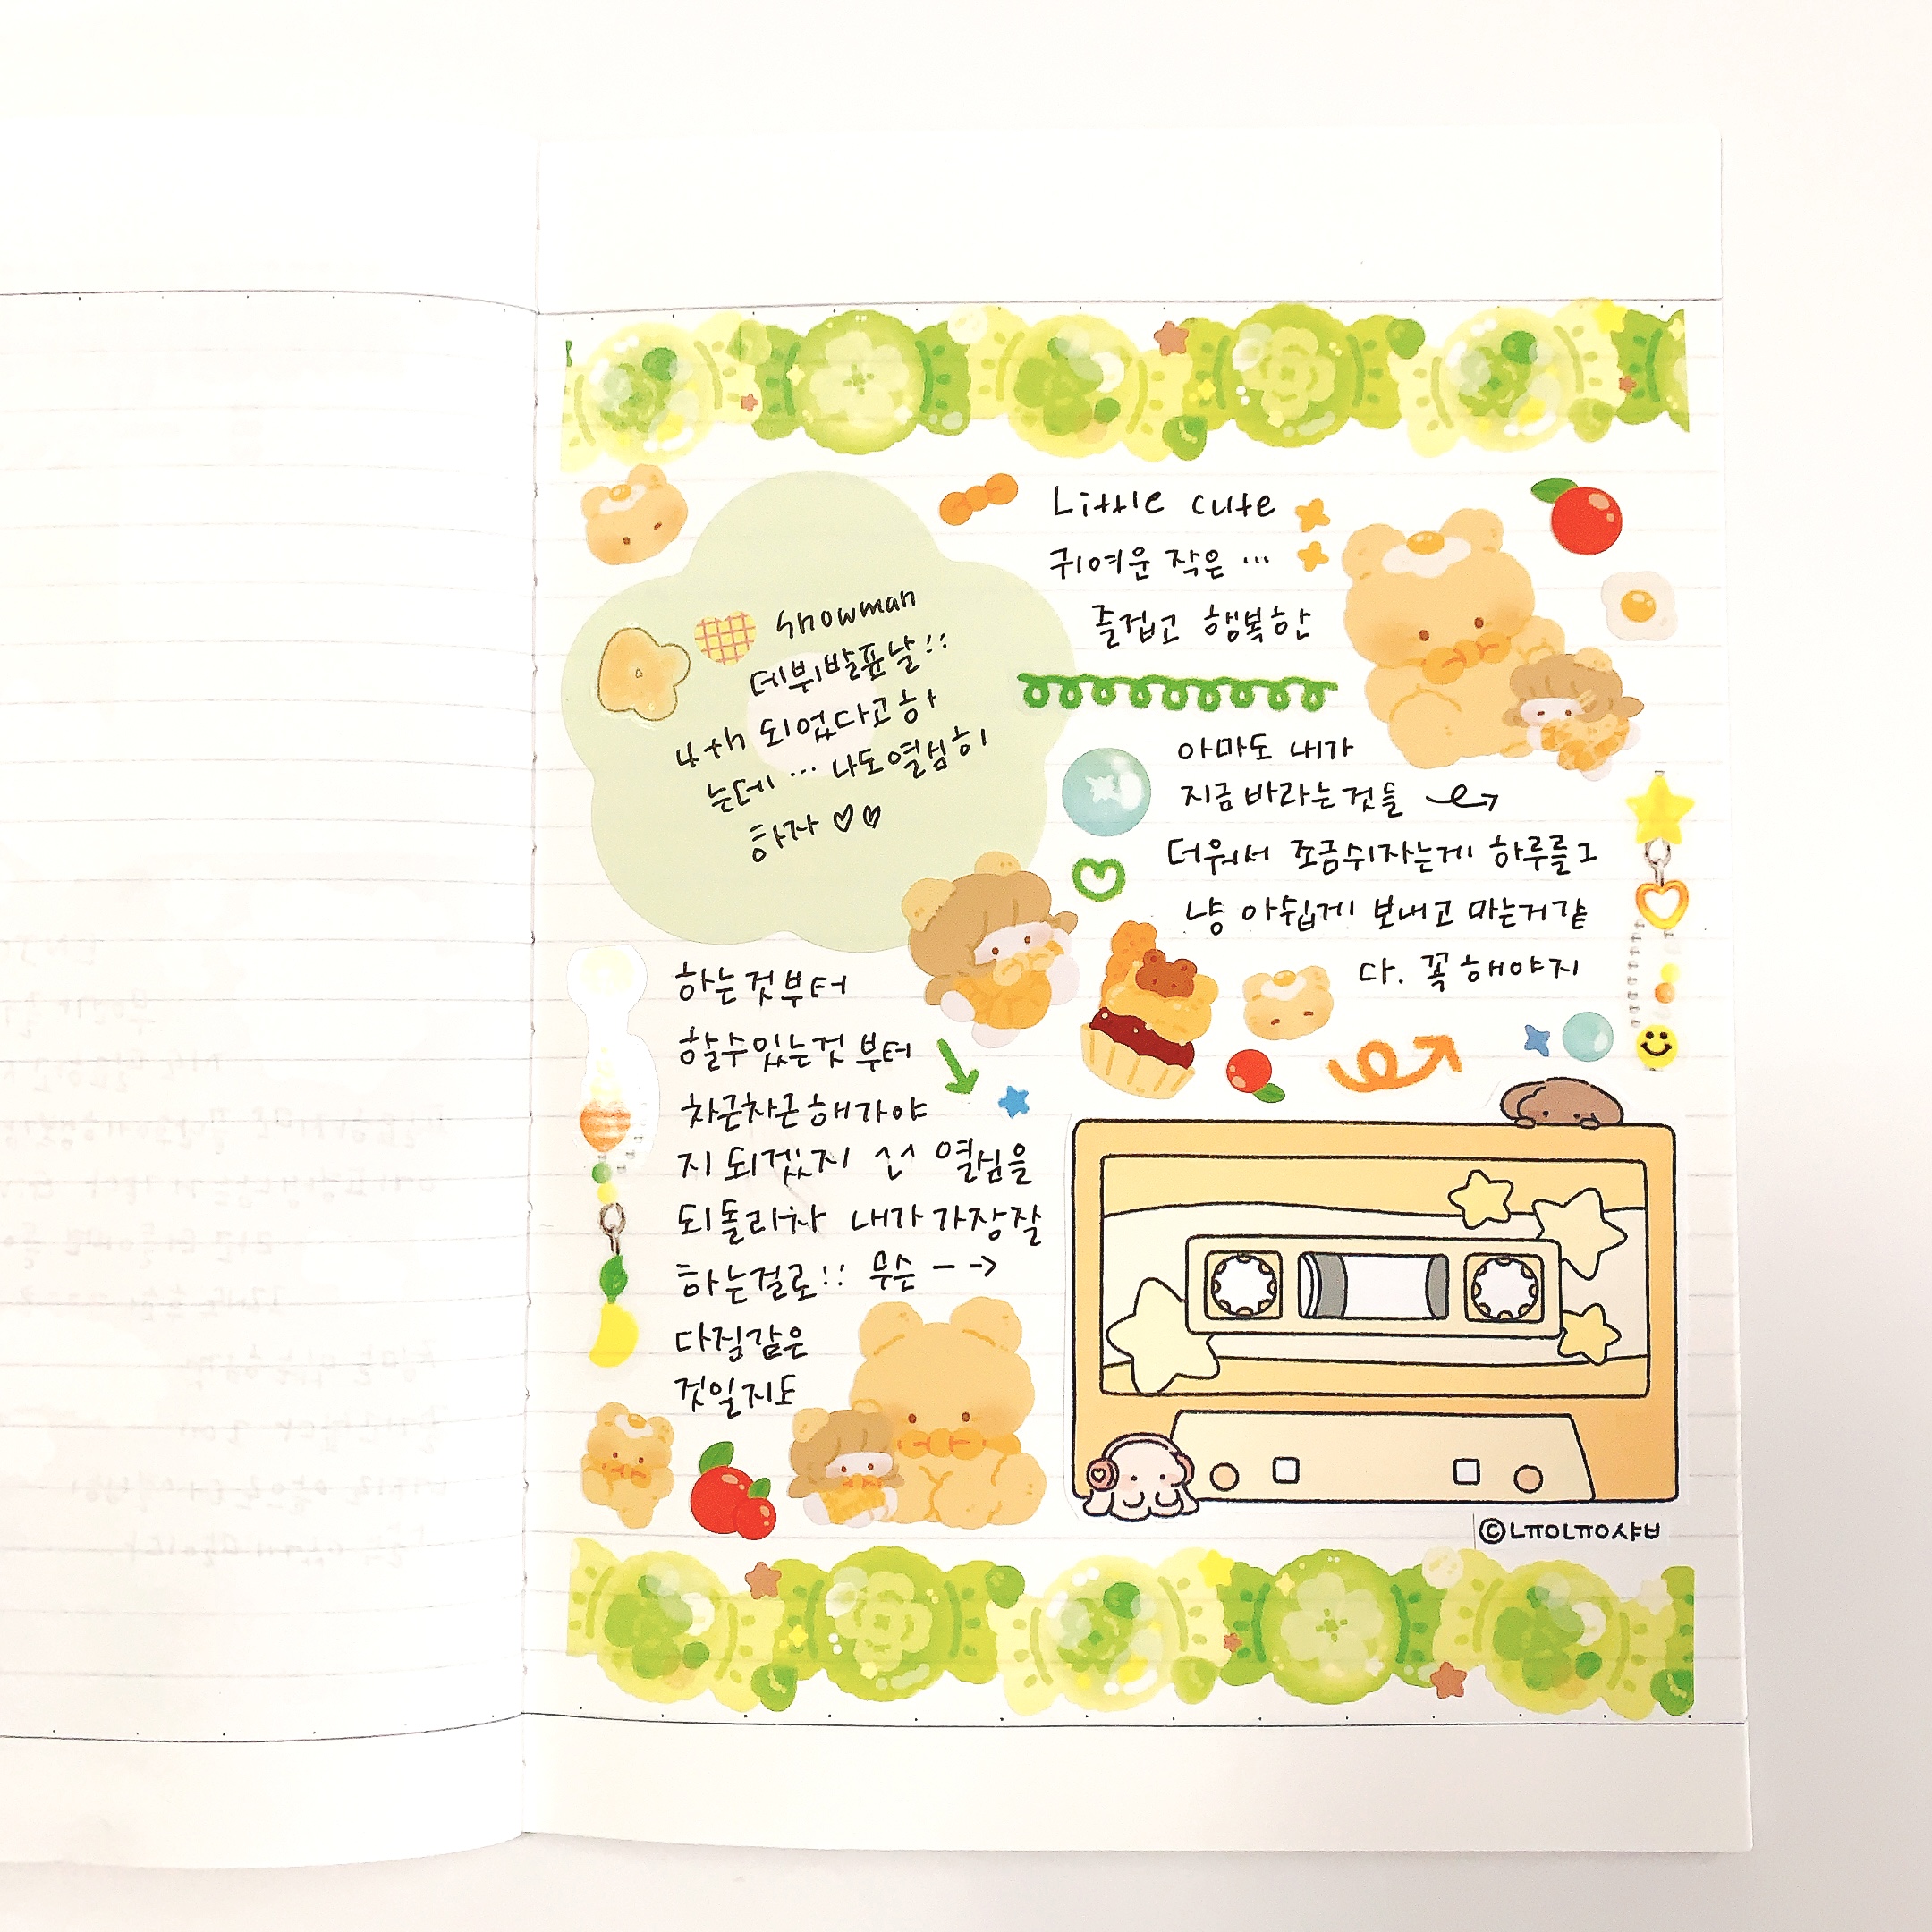 Snowman
데뷔발표날!!
나+4 되었다고 하
는데 … 나도열심히
하자 ♡♡
Little cute
귀여운 작은 …
즐겁고 행복한
아마도 내가
지금 바라는것들
더워서 조금쉬자는게 하루를그
냥 아쉽게 보내고 마는거같
다. 꼭 해야지
하는것부터
할수있는것 부터
차근차근해가야
지 되겠지 선 열심을
되돌리차 내가 가장잘
하는걸로!! 무슨 - →
다짐같은
것일지도
©ㄴㅠㅇㄴㅠㅇ샤ㅂ